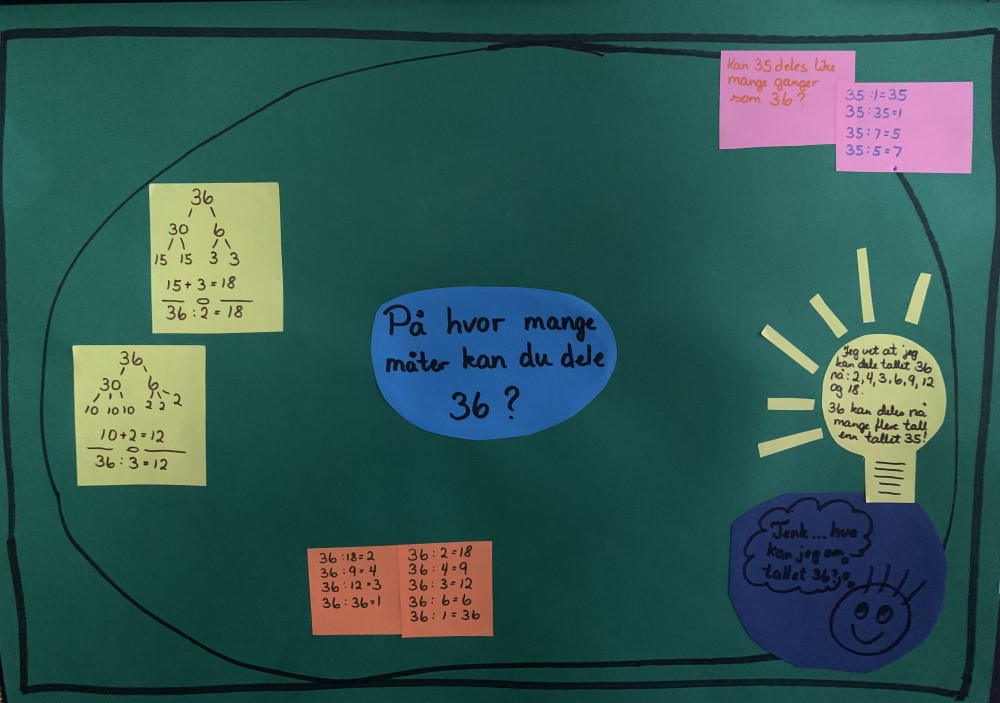 Kan 35 deles like
mange ganger
som 36?
35:1=35
35:35=1
35:7=5
35:5=7
36
30 6
15 15 3 3
15+3=18
36:2=18
36
30 6
10 10 10 2 2 2
10+2=12
36:3=12
På hvor mange
måter kan du dele
36?
Jeg vet at jeg
kan dele tallet 36
på: 2, 4, 3, 6, 9, 12
og 18.
36 kan deles på
mange flere tall
enn tallet 35!
Tenk... hva
kan jeg om
tallet 36?
36:18=2
36:9=4
36:12=3
36:36=1
36:2=18
36:4=9
36:3=12
36:6=6
36:1=36